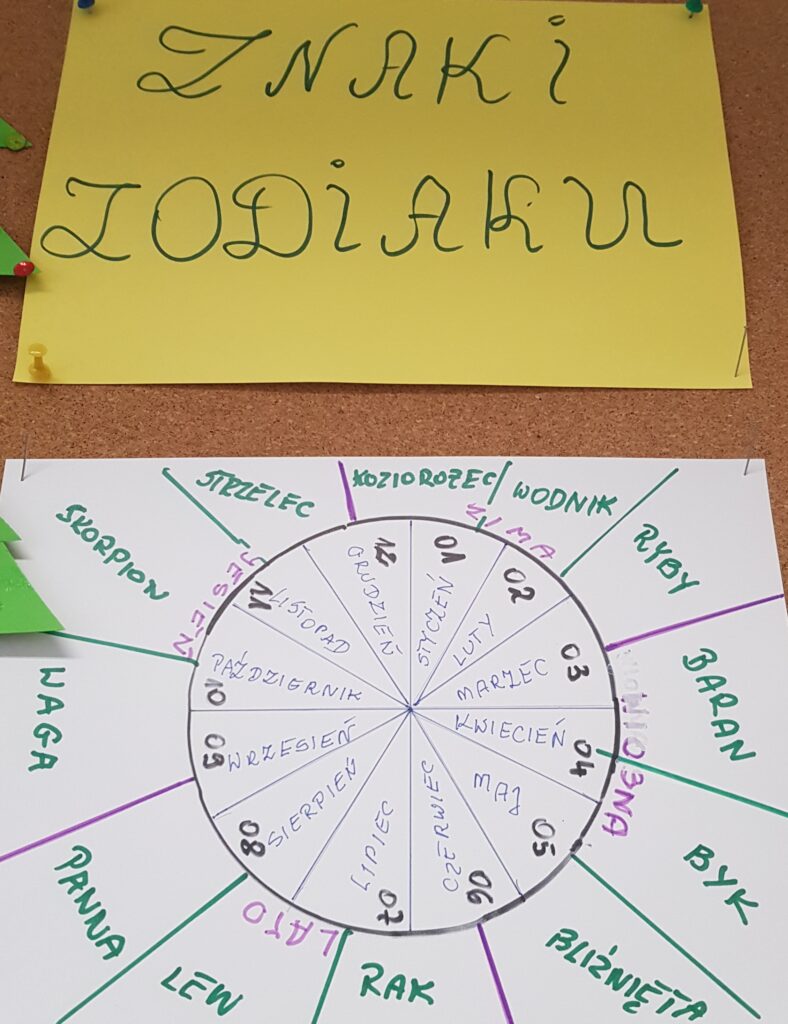 ZNAKI
ZODIAKU
KOZIOROŻEC
WODNIK
RYBY
BARAN
BYK
BLIŹNIĘTA
RAK
LEW
PANNA
WAGA
SKORPION
STRZELEC
ZIMA
WIOWIOSNA
LATO
JESIEŃ
01 STYCZEŃ
02 LUTY
03 MARZEC
04 KWIECIEŃ
05 MAJ
06 CZERWIEC
07 LIPIEC
08 SIERPIEŃ
09 WRZESIEŃ
10 PAŹDZIERNIK
11 LISTOPAD
12 GRUDZIEŃ